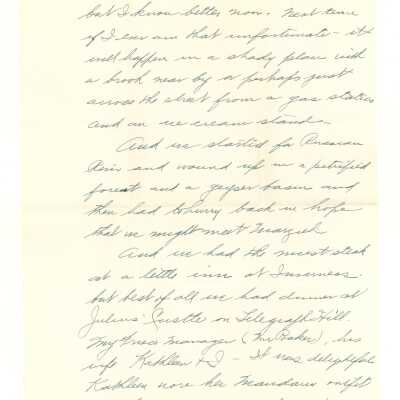 but I know better now. Next time
if I ever am that unfortunate - it
will happen in a shady place with
a brook near by or perhaps just
across the street from a gas station
and an ice cream stand.
And we started for Russian
River and wound up in a petrified
forest and a geyser basin and
then had to hurry back in hope
that we might meet
And we had the nicest steak
at a little inn at Inverness
but best of all we had dinner at
Julius' Castle on Telegraph Hill
My manager (Mr Baker), his
wife Kathleen & I - It was delightful
Kathleen wore her Mandarin outfit